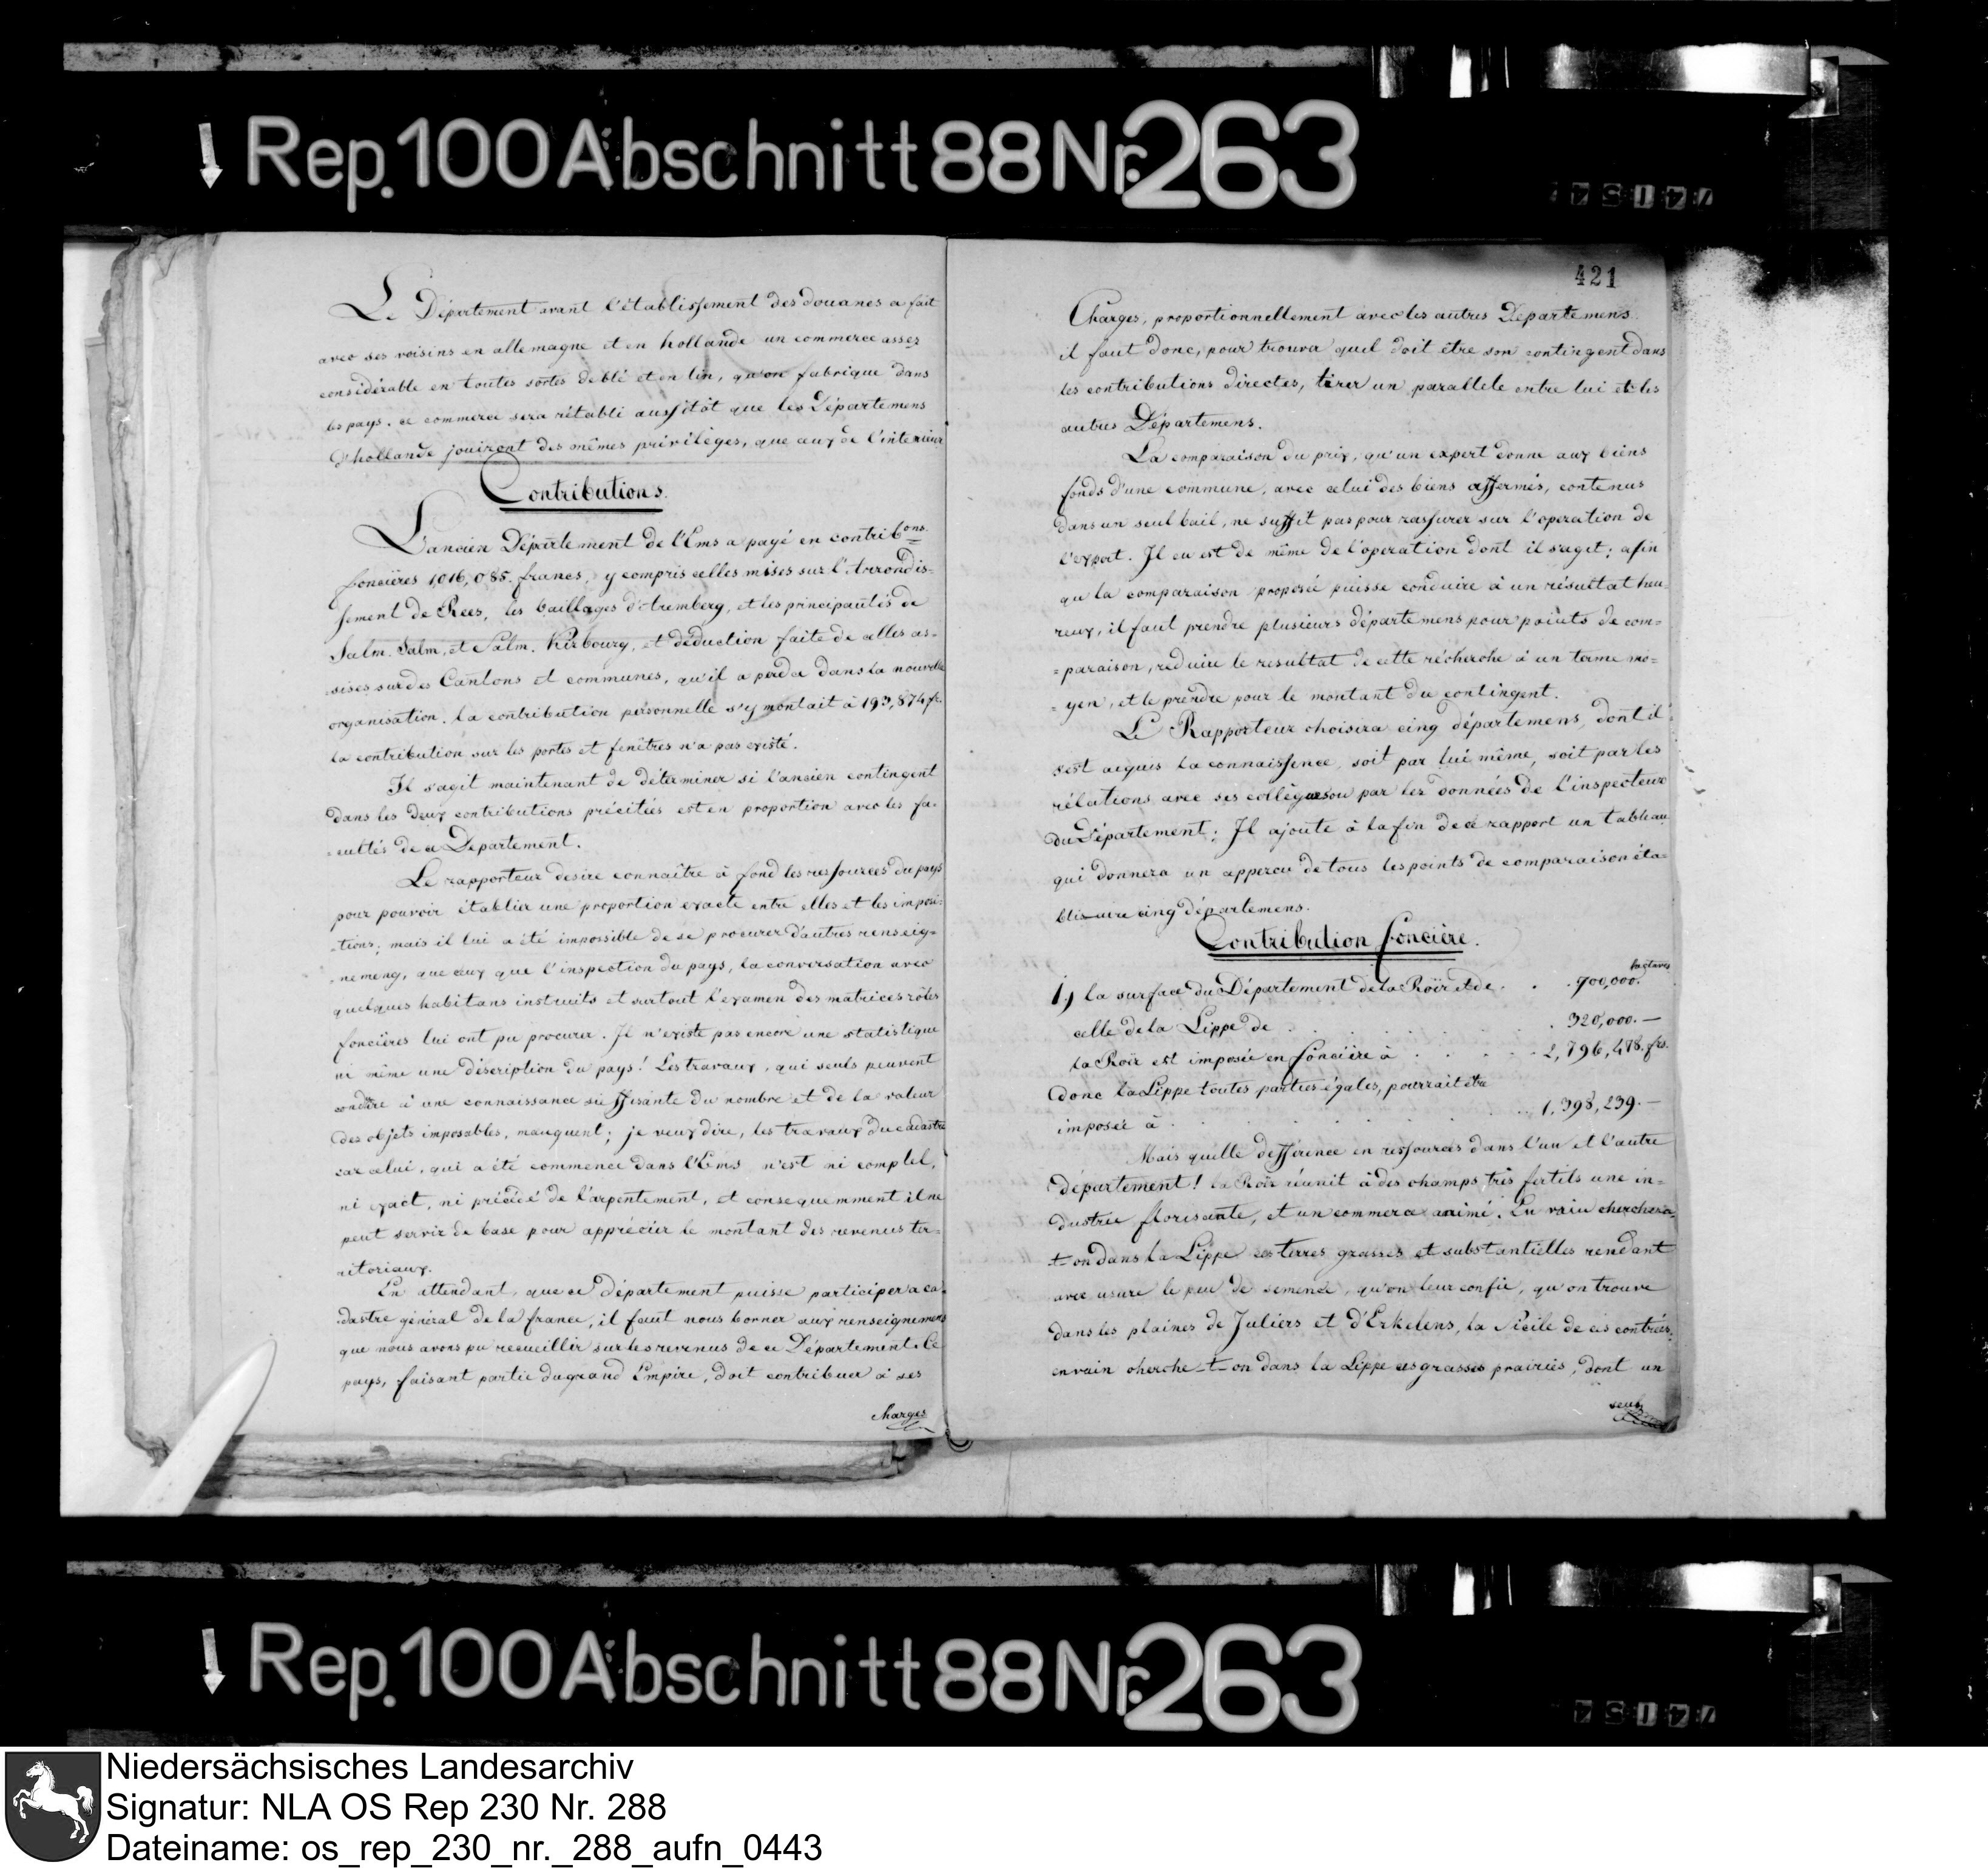 Rep. 100 Abschnitt 88 Nr. 263
Le Département avant l'établissement des douanes a fait
avec ses voisins en allemagne et en hollande un commerce assez
considérable en toutes sortes de blé et en lin, qu'on fabrique dans
les pays. ce commerce sera rétabli aussitôt que les Départemens
d'hollande jouiront des mêmes privilèges, que aux de l'interieur
Contributions.
L'ancien Département de l'Ems a payé en contribons.
foncières 1,016,085. francs, y compris celles mises sur l'Arrondis-
sement de Rees, les baillages d'Aremberg, et les principautés de
Salm. Salm, et Salm. Kirbourg, et déduction faite de celles as-
-sises sur des Cantons et communes, qu'il a perdu dans la nouvelle
organisation. la contribution personnelle s'y montait à 193,874 fr.
la contribution sur les portes et fenêtres n'a pas existé.
Il s'agit maintenant de déterminer si l'ancien contingent
dans les deux contributions précitées est en proportion avec les fa-
-cultés de ce Departement.
Le rapporteur desire connaître à fond les ressources du pays
pour pouvoir établir une proportion exacte entre elles et les imposi-
-tions; mais il lui a été impossible de se procurer d'autres renseig-
-nemens, que ceux que l'inspection du pays, la conversation avec
quelques habitans instruits et surtout l'examen des matrices rôles
foncières lui ont pu procurer. Il n'existe pas encore une statistique
ni même une déscription du pays! Les travaux, qui seuls peuvent
conduire à une connaissance suffisante du nombre et de la valeur
des objets imposables, manquent; je veux dire, les travaux du cadastre
car celui, qui a été commencé dans l'Ems n'est ni complet,
ni exact, ni précédé de l'arpentement, et consequemment il ne
peut servir de base pour apprécier le montant des revenus ter-
ritoriaux.
En attendant, que ce Département puisse participer a ca-
-dastre général de la france, il faut nous borner aux renseignemens
que nous avons pu recueillir sur les revenus de ce Département. Ce
pays, faisant partie du grand Empire, doit contribuer à ses
charges
421
Charges, proportionnellement avec les autres Departemens.
il faut donc, pour trouver quel doit être son contingent dans
les contributions directes, tirer un parallele entre lui et les
autres Départemens.
La comparaison du prix, qu'un expert donne aux biens
fonds d'une commune, avec celui des biens affermés, contenus
dans un seul bail, ne suffit pas pour rassurer sur l'operation de
l'expert. Il en est de même de l'operation dont il s'agit; afin
qu la comparaison proposée puisse conduire à un résultat heu-
reux, il faut prendre plusieurs départemens pour points de com-
=paraison, réduire le resultat de cette récherche à un terme mo-
=yen, et le prendre pour le montant du contingent.
Le Rapporteur choisira cinq départemens, dont il
s'est acquis la connaissence, soit par lui même, soit par les
rélations avec ses collègues ou par les données de l'inspecteur
du Département; Il ajoute à la fin de ce rapport un tableau
qui donnera un apperçu de tous les points de comparaison éta-
cinq départemens.
Contribution foncière.
1.) la surface du Département de la Roër et de . . . 900,000. hectares
celle de la Lippe de . . . 320,000. —
la Roër est imposée en foncière à . . . 2,796,478. frs.
donc la Lippe toutes parties égales, pourrait être
imposée à . . . 1,398,239. —
Mais quelle defférence en ressources dans l'un et l'autre
département! la Roër réunit à des champs très fertils une in-
dustrie florisante, et un commerce animé. En vain cherchera-
-t-on dans la Lippe ces terres grasses et substantielles rendant
avec usure le peu de semence, qu'on leur confie, qu'on trouve
dans les plaines de Juliers et d'Erkelens, la Sicile de ces contrées;
en vain cherche-t-on dans la Lippe ces grasses prairies, dont un
seul
Rep. 100 Abschnitt 88 Nr. 263
Niedersächsisches Landesarchiv
Signatur: NLA OS Rep 230 Nr. 288
Dateiname: os_rep_230_nr._288_aufn_0443